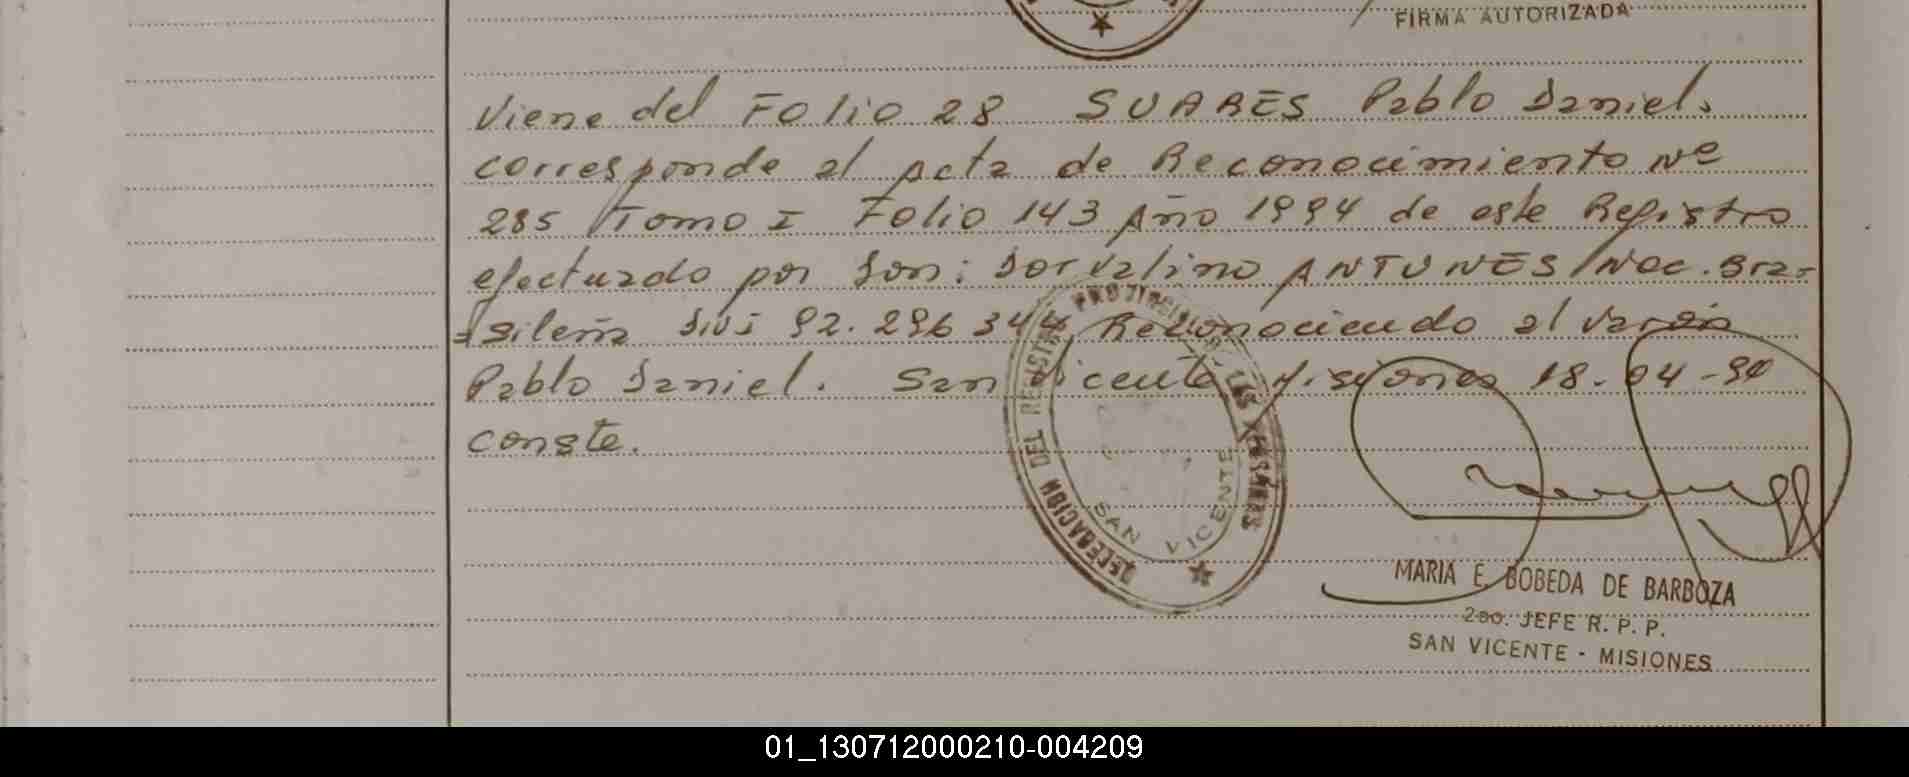 FIRMA AUTORIZADA
Viene del Folio 28 SUARES Pablo Daniel.
corresponde al Acta de Reconocimiento Nº
285 Tomo I Folio 143 Año 1994 de este Registro
efectuado por Don: Dorvalino ANTUNES Nac. Bra-
-sileña DNI 92.296 344 Reconociendo al varón
Pablo Daniel. San Vicente Misiones 18-04-
conste.
DELEGACION DEL REGISTRO PROVINCIAL DE LAS PERSONAS
SAN VICENTE
MARIA E. BOBEDA DE BARBOZA
2do. JEFE R. P. P.
SAN VICENTE - MISIONES
01_130712000210-004209